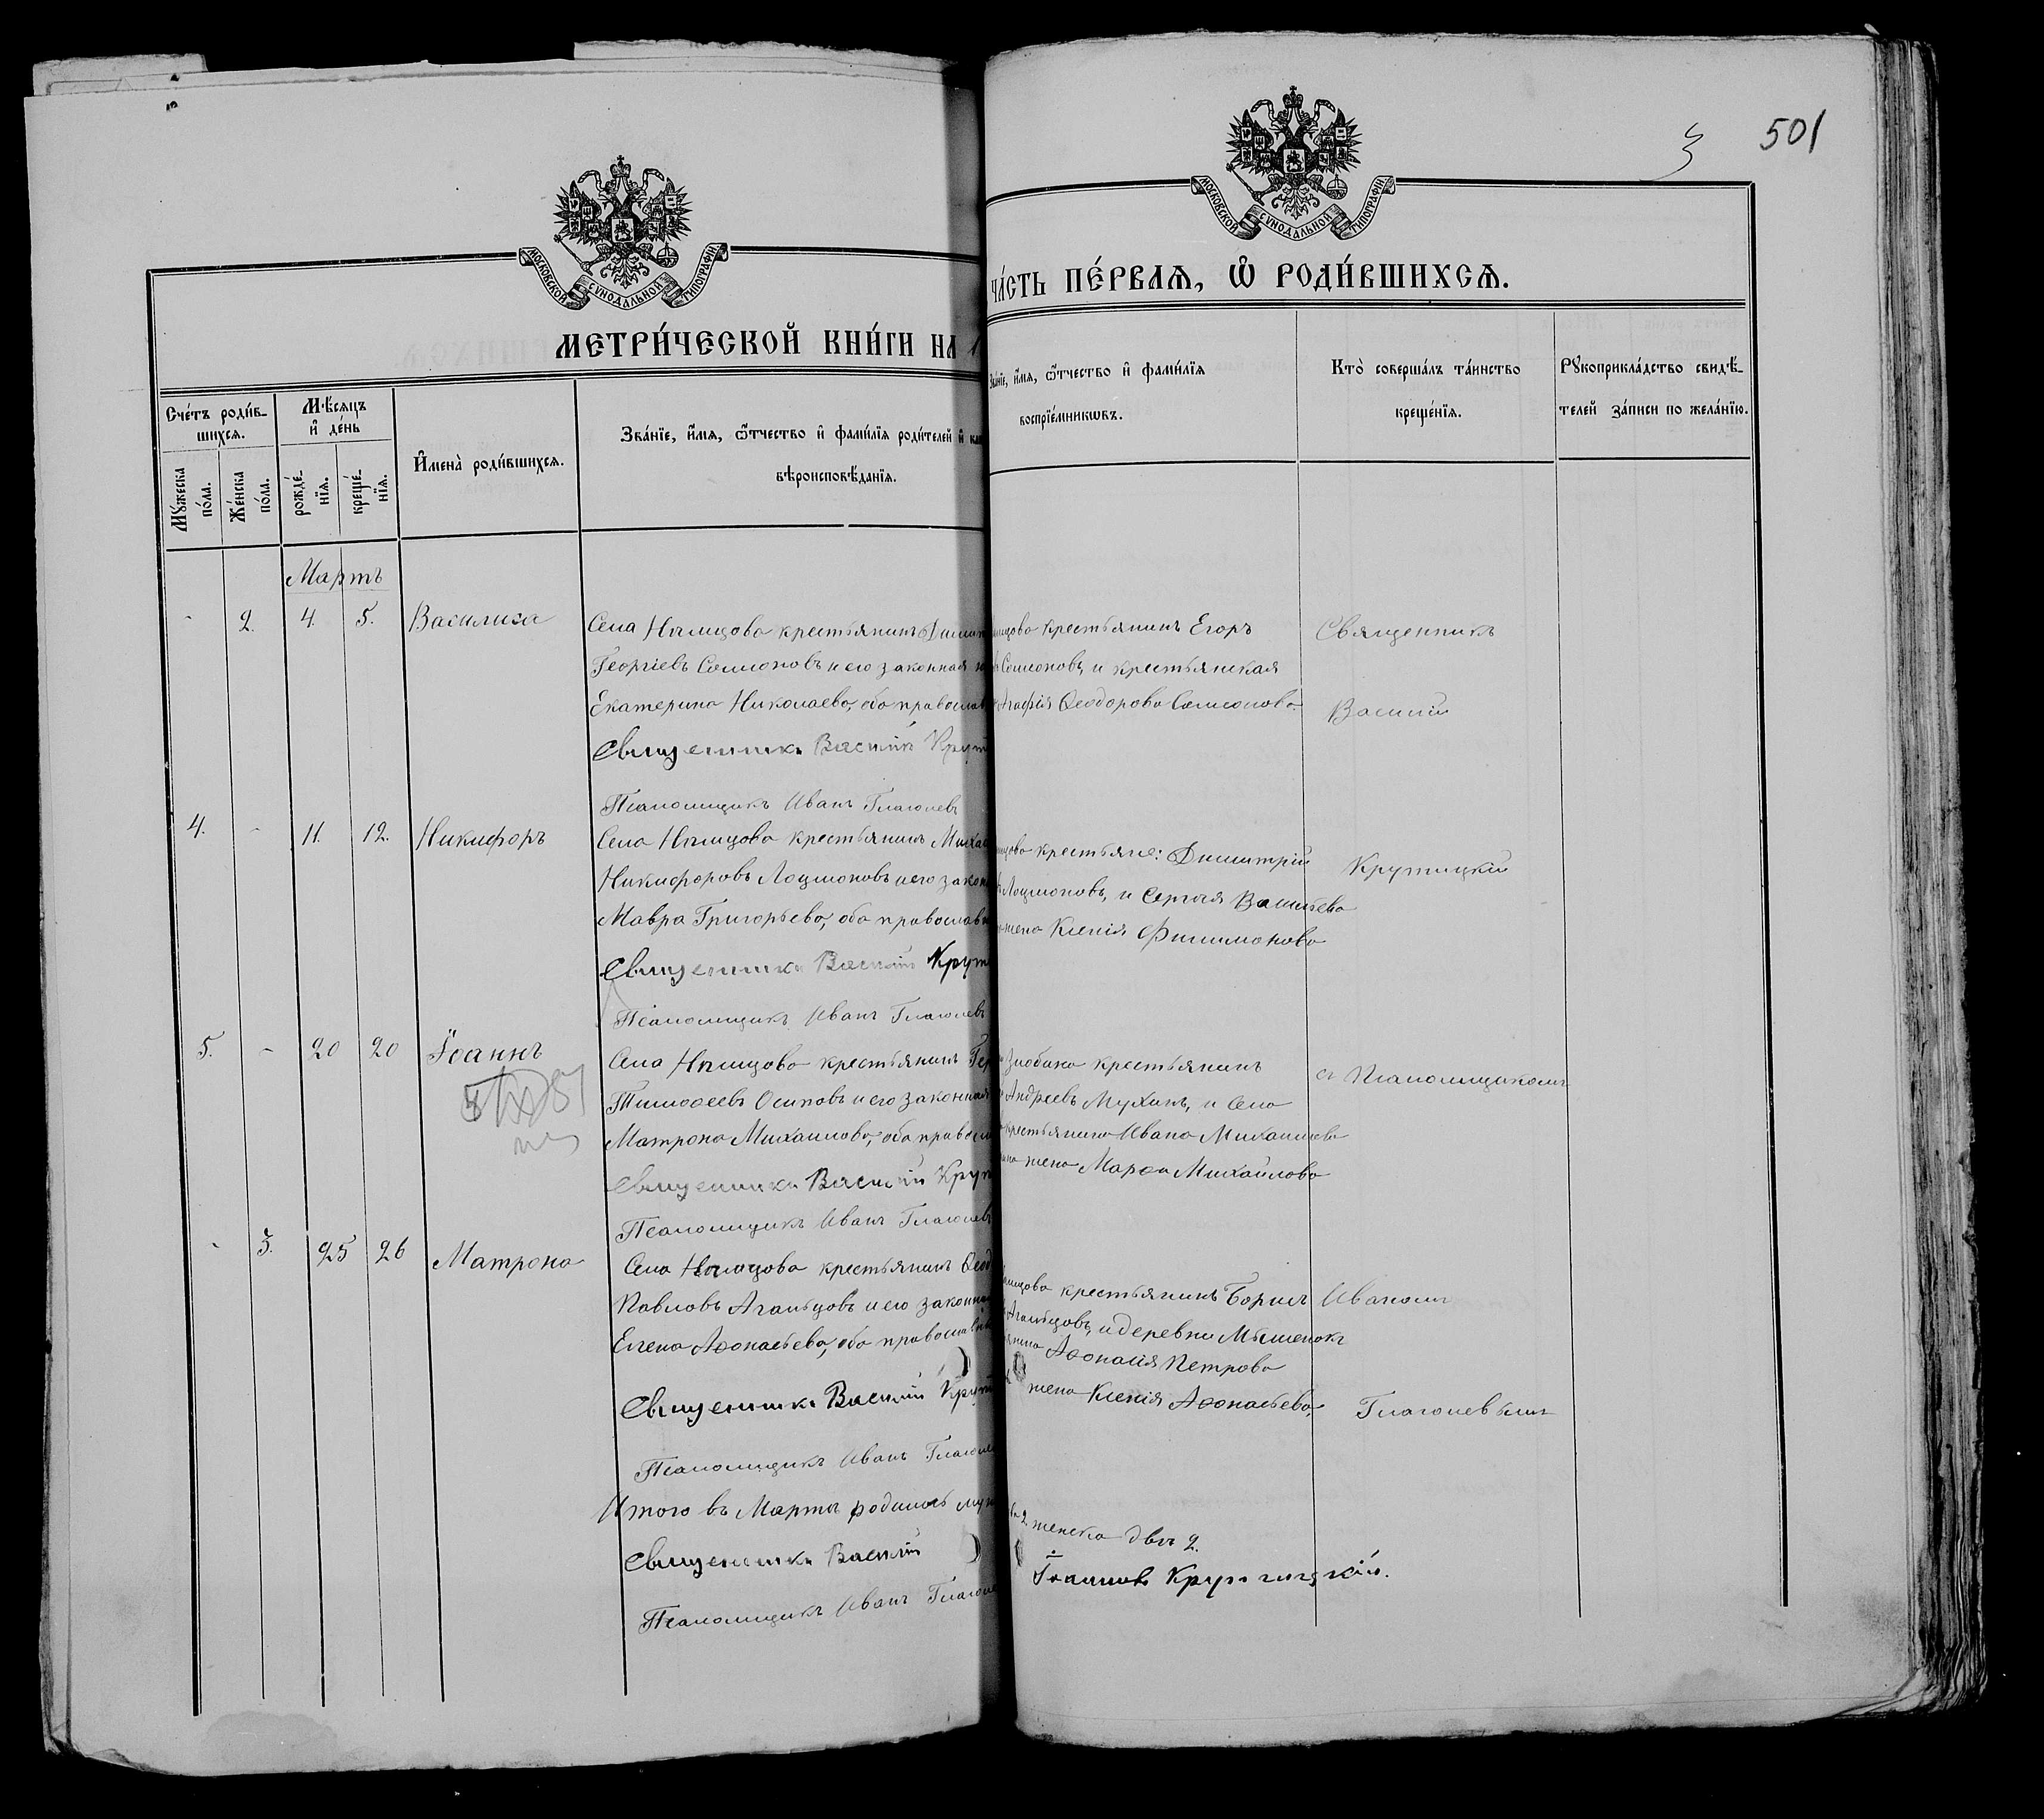 501
3
МОСКОВСКОЙ СѴНОДАЛЬНОЙ ТИПОГРАФІИ
МОСКОВСКОЙ СѴНОДАЛЬНОЙ ТИПОГРАФІИ
МЕТРИ́ЧЕСКОЙ КНИ́ГИ НА 1
ЧА́СТЬ ПЕ́РВАѦ, Ѽ РОДИ́ВШИХСѦ.
Сче́тъ роди́в-
шихсѧ.
Мѣ́сѧцъ
и҆ де́нь
Мꙋ́жеска
по́ла.
Же́нска
по́ла.
рожде́-
нїѧ.
креще́-
нїѧ.
И҆мена̀ роди́вшихсѧ.
Зва́нїе, и҆́мѧ, ѻ҆́тчество и҆ фами́лїѧ роди́телей и҆ как
вѣроисповѣ́данїѧ.
Зва́нїе, и҆́мѧ, ѻ҆́тчество и҆ фами́лїѧ
воспрїе́мникѡвъ.
Кто̀ соверша́лъ та́инство
креще́нїѧ.
Рꙋкоприкла́дство свидѣ́-
телей за́писи по жела́нїю.
Мартъ
- 2. 4. 5. Василиса
Села Нѣмцова крестьянинъ Димит
Георгіевъ Самсоновъ и его законная ж
Екатерина Николаева, оба православ
Священникъ Василій Крут
Псаломщикъ Иванъ Глаголевъ
мцова крестьянинъ Егоръ
Самсоновъ, и крестьянская
Агафія Ѳеодорова Самсонова.
Священникъ
Василій
4. - 11. 12. Никифоръ
Села Нѣмцова крестьянинъ Михаи
Никифоровъ Лоцмоновъ и его закон
Мавра Григорьева, оба православн
Священникъ Василій Крути
Псаломщикъ Иванъ Глаголевъ
мцова крестьяне: Димитрій
Лоцмоновъ, и Сергѣя Васильева
жена Ксенія Филимонова
Крутицкій
5. - 20 20 Іоаннъ
Села Нѣмцова крестьянинъ Гер
Тимоѳеевъ Осиповъ и его законная
Матрона Михаилова, оба правосл
Священникъ Василій Крут
Псаломщикъ Иванъ Глаголевъ
Злобина крестьянинъ
Андреевъ Мухинъ, и села
крестьянина Ивана Михаилова
жена Марѳа Михайлова
съ Псаломщикомъ
- 3. 25 26 Матрона
Села Нѣмцова крестьянинъ Ѳеод
Павловъ Агальцовъ и его законна
Елена Аѳонасьева, оба православн
Священникъ Василій Крут
Псаломщикъ Иванъ Глаголе
мцова крестьянинъ Борисъ
Агальцовъ, и деревни Мышенокъ
Аѳонасія Петрова
жена Ксенія Аѳонасьева.
Иваномъ
Глаголевымъ
Итого въ Мартѣ родилось муж
2 женска двѣ 2.
Священникъ Василій
Іоанновъ Крутицкій.
Псаломщикъ Иванъ Глаголе